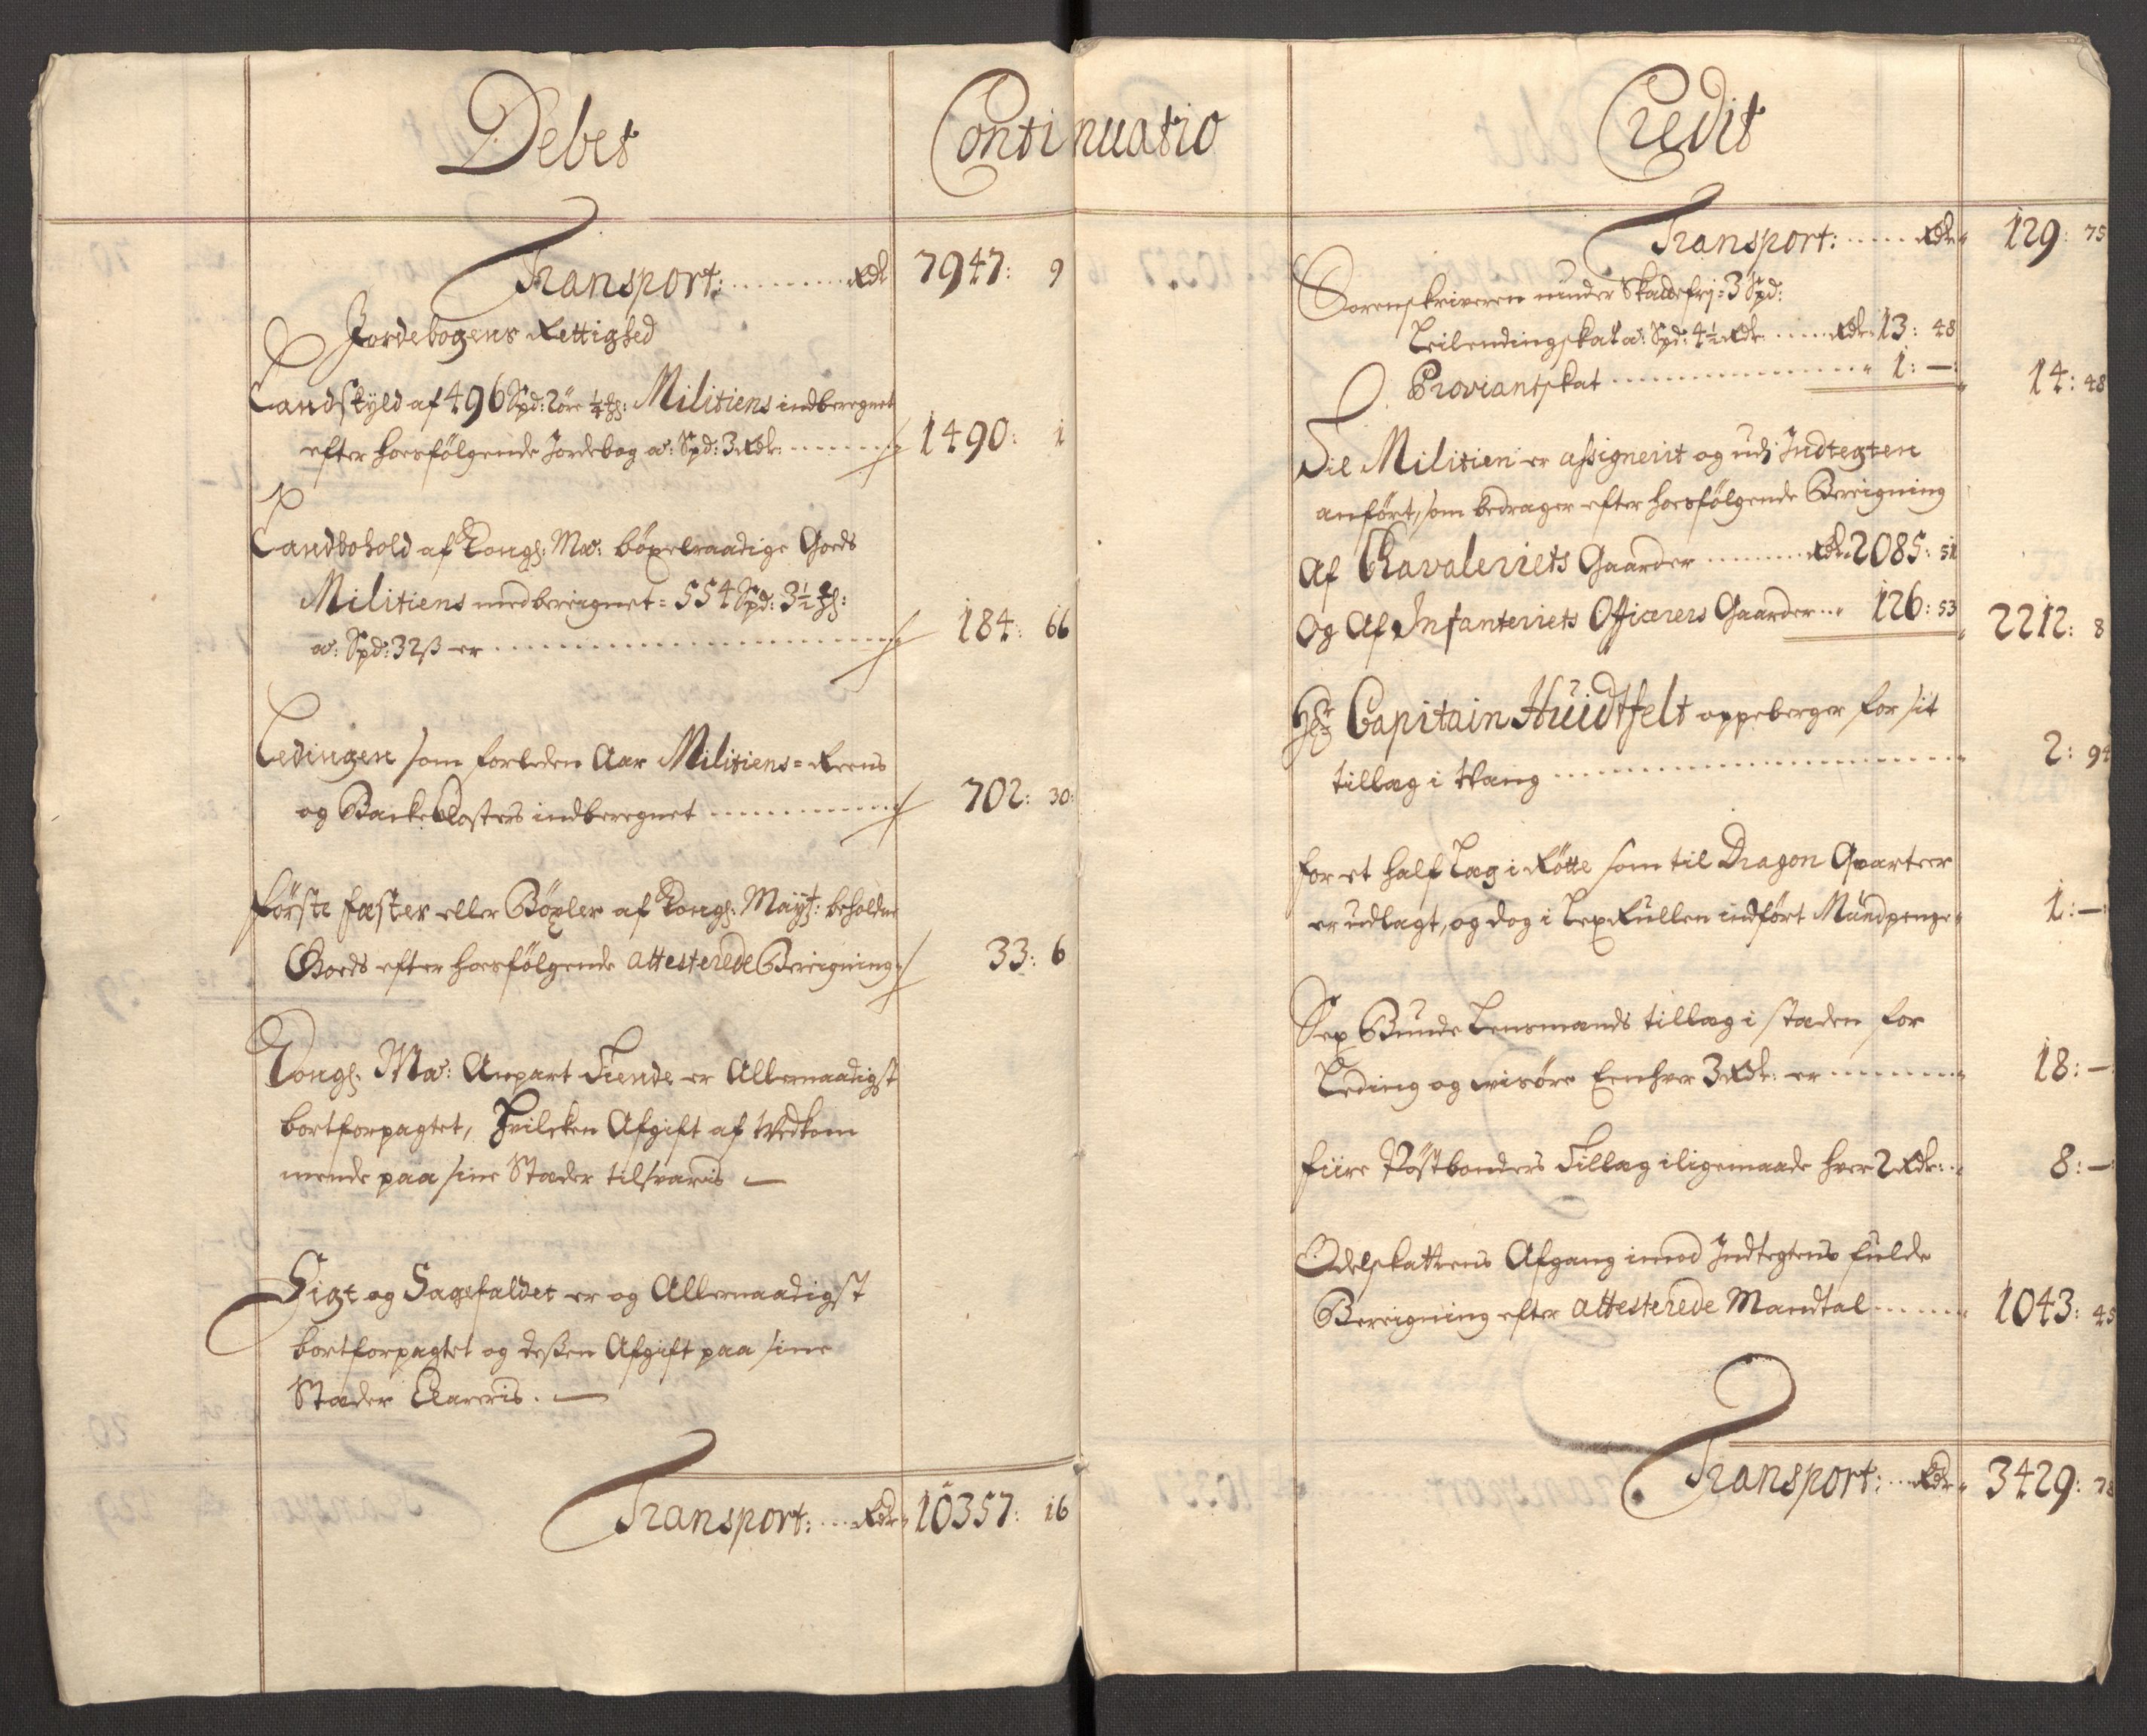 Debet
Continuatio
Transport: Rdr 7947: 9
Jordebogens Rettighed
Landskyld af 496 Spd: 2 öre ¼ : Militiens indberegnet
efter hoesfölgende Jordebog a: Spd: 3 Rdr: 1490: 1
Landbohold af Kongl: Ma: böxelraadige Goeds
Militiens medbereignet = 554 Spd: 3½ :
a: Spd: 32 ß er 184: 66
Ledingen som forleden Aar Militiens = Reens
og Backe Closters indberegnet 702: 30:
förste fæster eller Böxler af Kongl: Mayt: beholdne
Goeds efter hoesfölgende attesterede Bereigning 33: 6
Kongl. Ma: Anpart Tiende er Allernaadigst
bortforpagtet, Hvilcken Afgift af Vedkom
mende paa sine Stæder tilsvaris —
Sigt og Sagefaldet er og Allernaadigst
bortforpagtet og deßen Afgift paa sine
Stæder Clareris. —
Transport: Rdr 10357: 16
Credit
Transport: Rdr 129: 75
Sorenskriveren nünder Skattefrj = 3 Spd:
Leilendingskat a: Spd: 4½ Rdr: Rdr 13: 48
Proviantskat 1: — 14: 48
Til Militien er assignerit og udj Indtegten
anfört, som bedrager efter hoesfölgende Bereigning
Af Cavaleriets Gaarder Rdr 2085: 51
Og Af Infanteriets Officerers Gaarder 126: 53 2212: 8
Hr Capitain Huidtfelt oppeberger for sit
tillæg i Vang 2: 94
for et half Læg i Rötte som til Dragon Qvarteer
er udlagt, og dog i Lex Rullen indfört Mündpenge 1: —
Sex Bunde Lensmænds tillæg i stæden for
Leding og visöre Eenhver 3 Rdr: er 18: —
fiire Postbonders Tillæg iligemaade hver 2 Rdr: 8: —
Odelskattens Afgang imod Indtegtens fulde
Bereigning efter attesterede Mandtal 1043: 45
Transport: Rdr 3429: 78